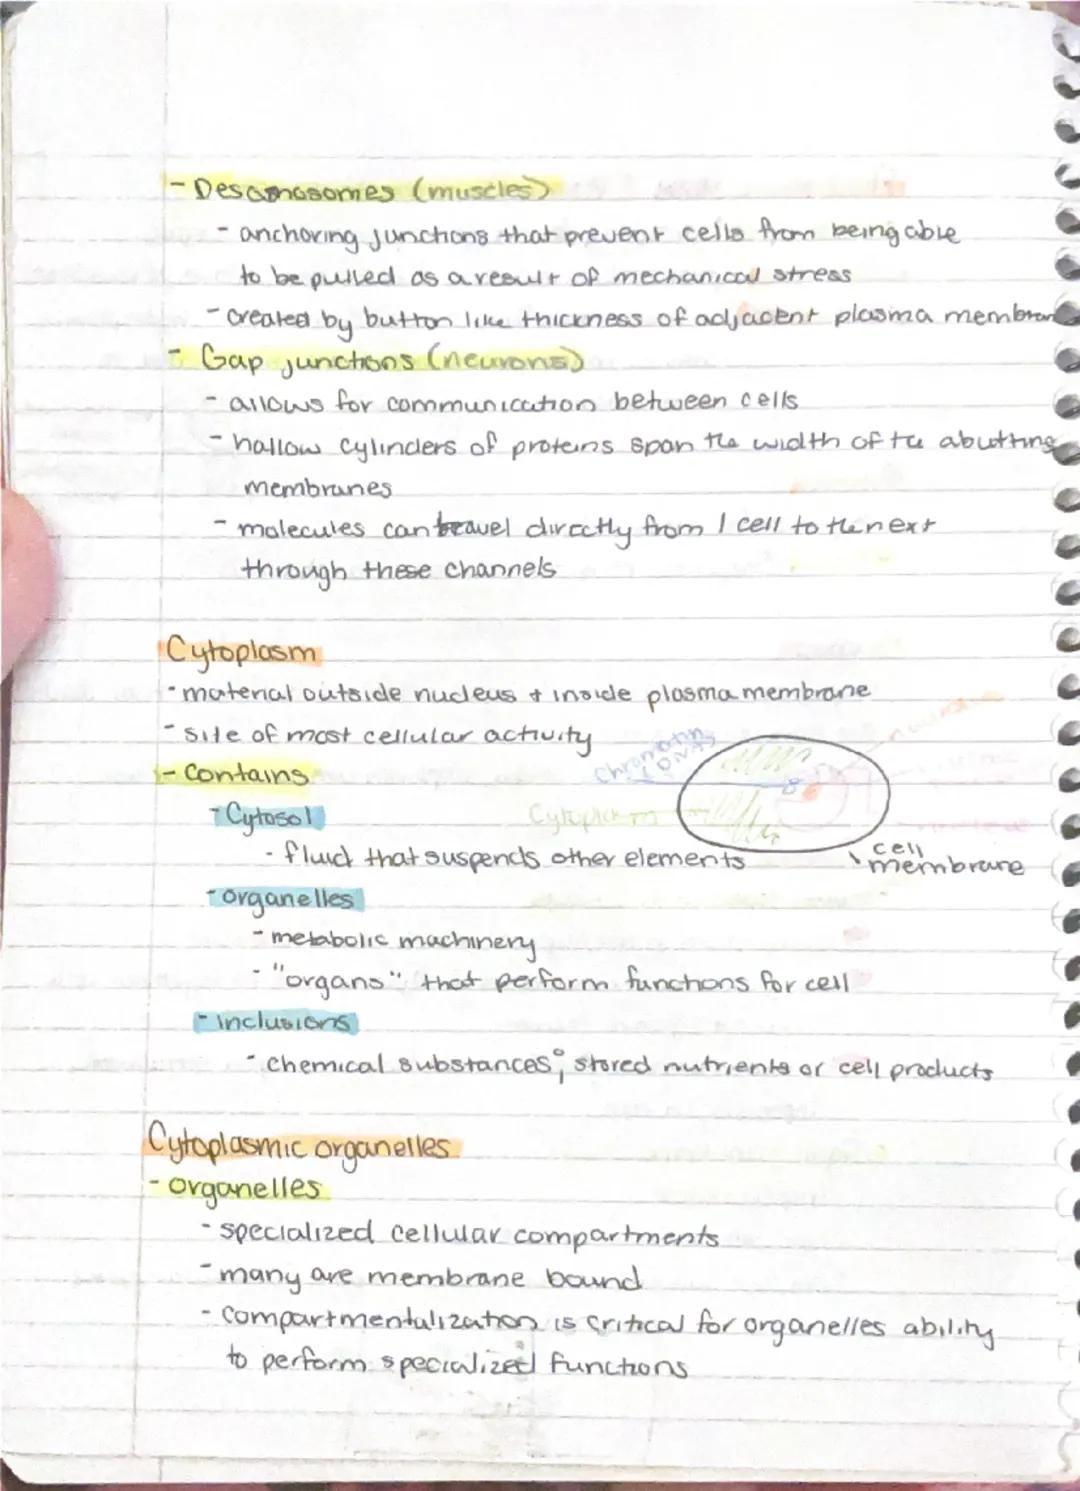 - Desmosomes (muscles)
- anchoring junctions that prevent cells from being able
to be pulled as a result of mechanical stress
- created by button like thickness of adjacent plasma membran
- Gap junctions (neurons)
- allows for communication between cells
- hallow cylinders of proteins span the width of the abutting
membranes
- molecules can travel directly from 1 cell to the next
through these channels
Cytoplasm
- material outside nucleus + inside plasma membrane
- site of most cellular activity
- Contains
Chromatin
(DNA)
- Cytosol
Cytoplasm
- fluid that suspends other elements
cell
membrane
- organelles
- metabolic machinery
- "organs" that perform functions for cell
- inclusions
- chemical substances; stored nutrients or cell products
Cytoplasmic organelles
- organelles
- specialized cellular compartments
- many are membrane bound
- compartmentalization is critical for organelles ability
to perform specialized functions